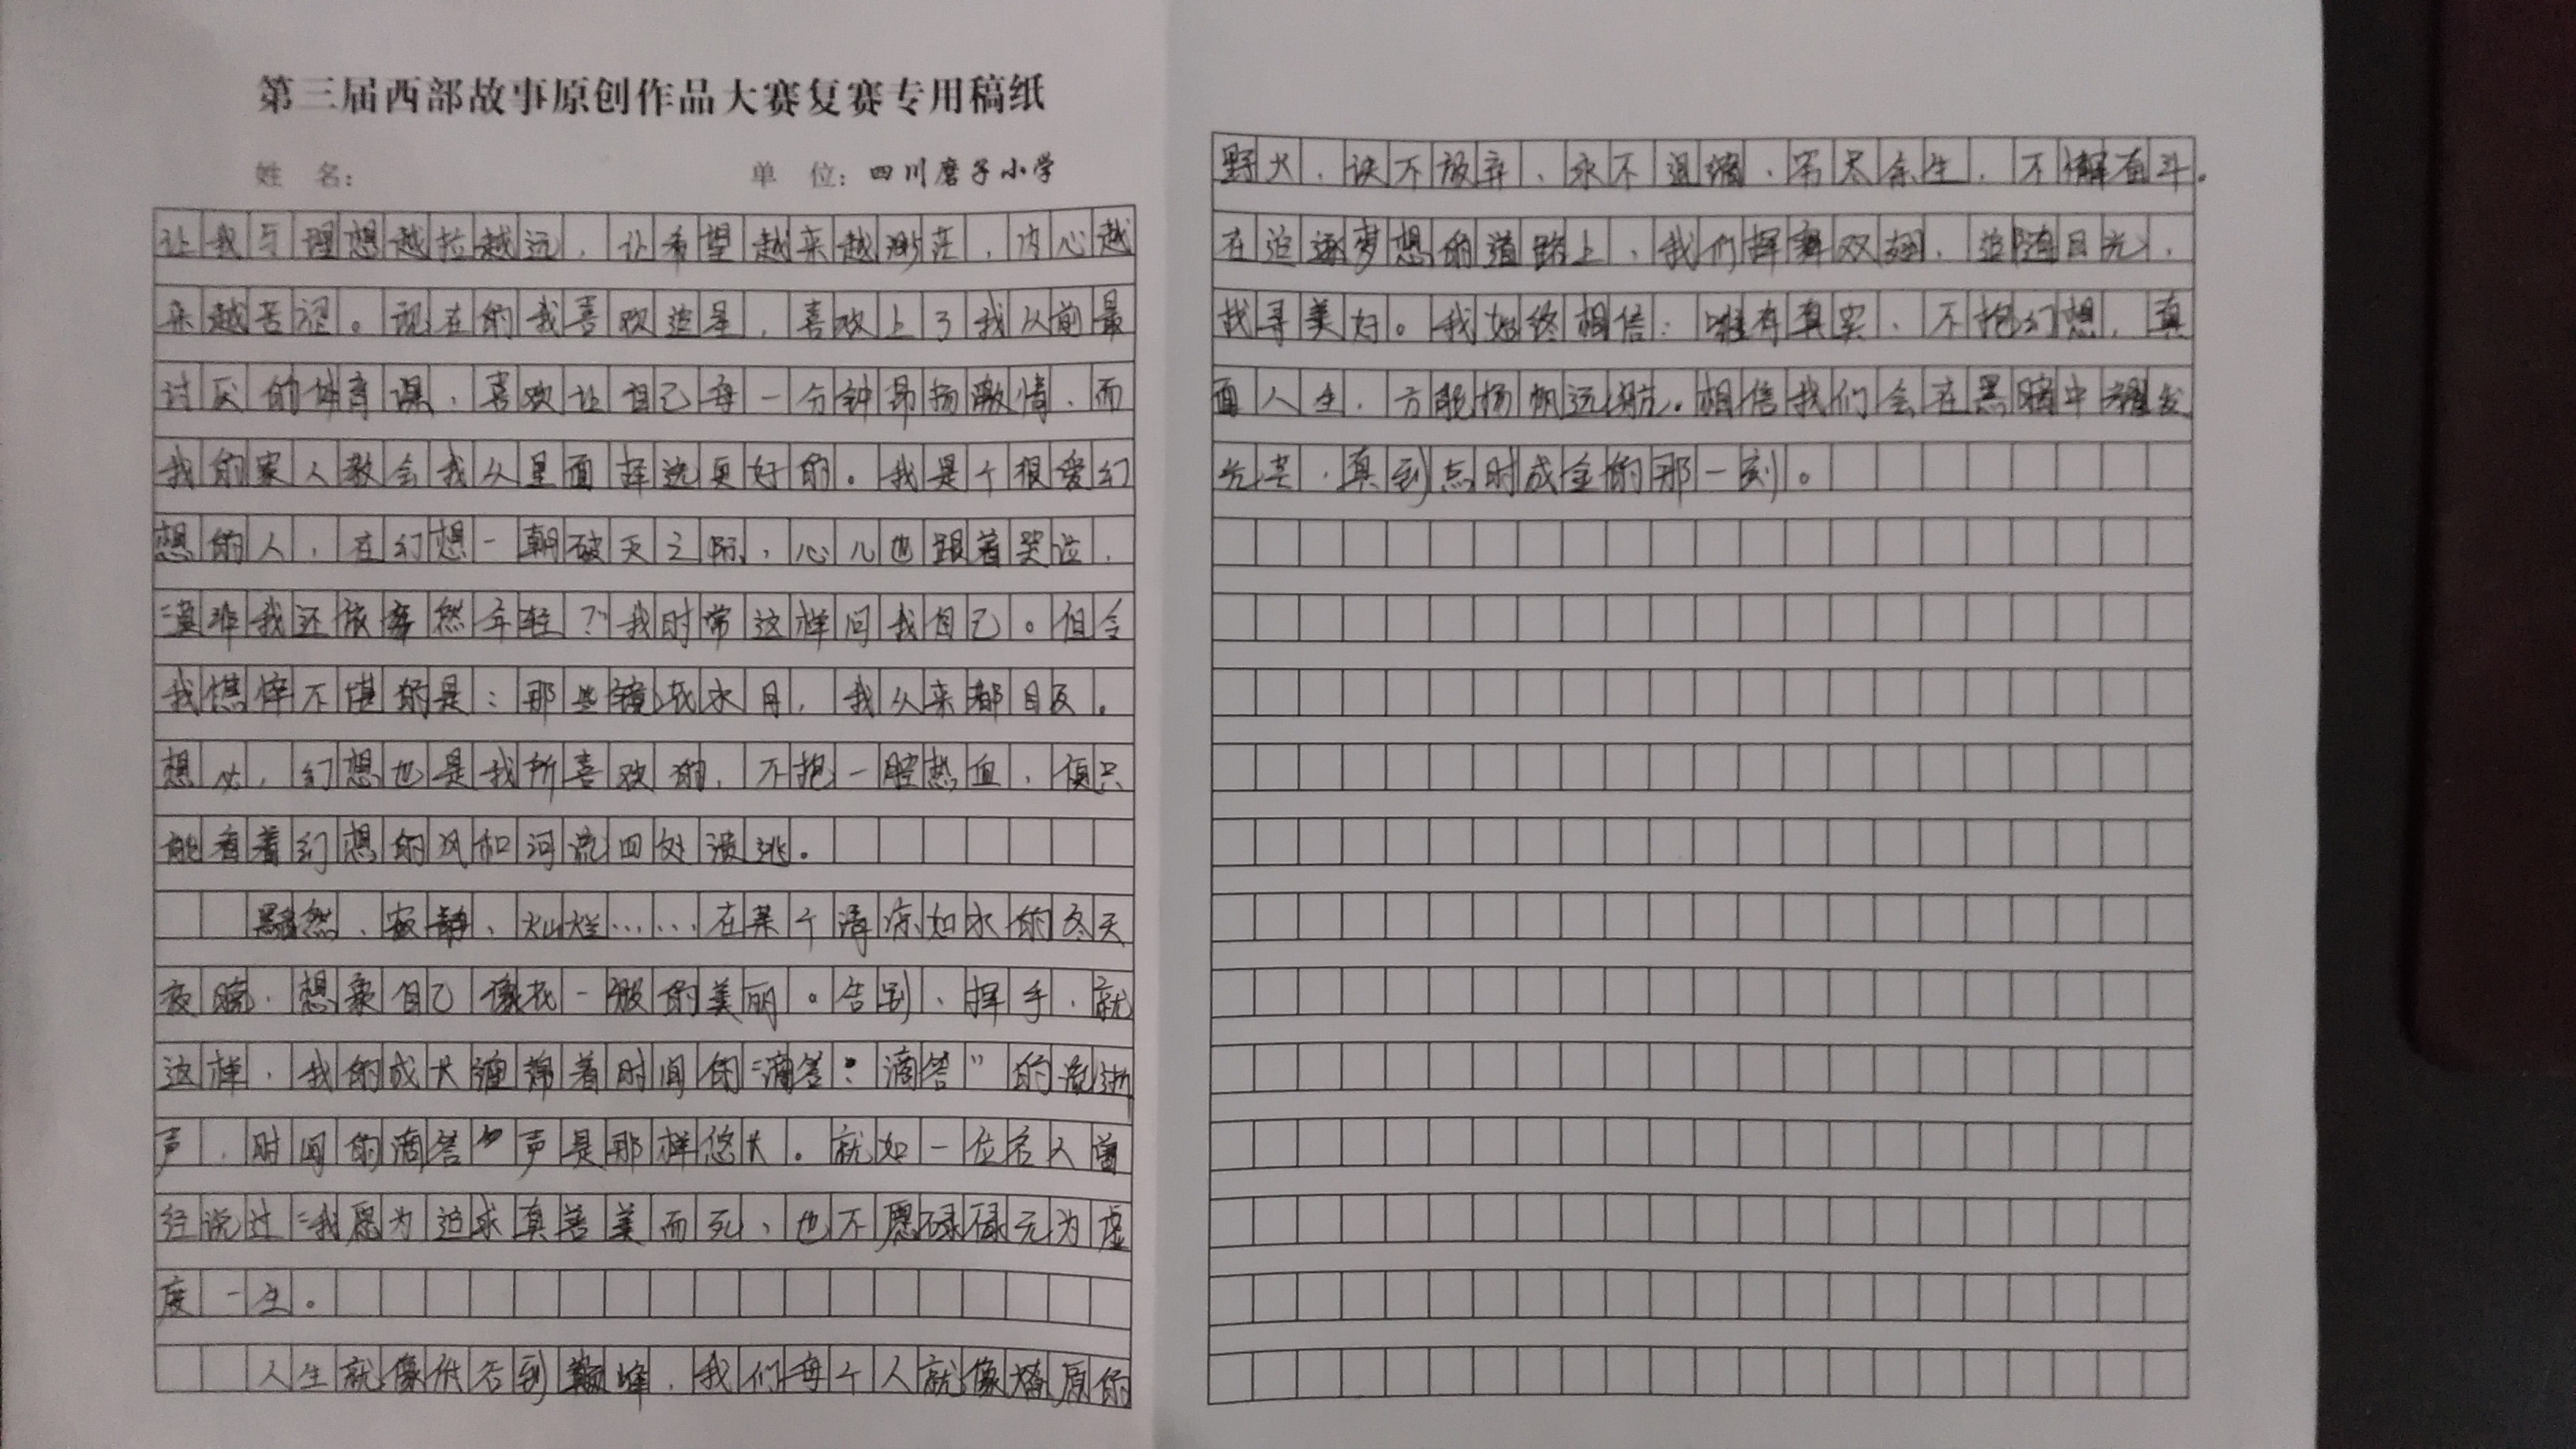 第三届西部故事原创作品大赛复赛专用稿纸
姓 名： 单 位：四川磨子小学
让我与理想越拉越远，让希望越来越渺茫，内心越
来越苦涩。现在的我喜欢追星，喜欢上了我从前最
讨厌的体育课，喜欢让自己每一分钟昂扬激情，而
我的家人教会我从里面择选更好的。我是个很爱幻
想的人，在幻想一朝破灭之际，心儿也跟着哭泣，
“莫非我还依然年轻？”我时常这样问我自己。但令
我憔悴不堪的是：那些镜花水月，我从来都自反。
想必，幻想也是我所喜欢的，不抱一腔热血，便只
能看着幻想的风和河流四处溃逃。
黯然、寂静、灿烂……在某个清凉如水的冬天
夜晚，想象自己像花一般的美丽。告别、挥手，就
这样，我的成长缠绵着时间的“滴答”“滴答”的流逝
声，时间的滴答声是那样悠长。就如一位名人曾
经说过“我愿为追求真善美而死，也不愿碌碌无为虚
度一生。
人生就像 否到巅峰，我们每个人就像燎原的
野火，决不放弃、永不退缩，穷尽余生，不懈奋斗。
在追逐梦想的道路上，我们挥舞双翅，追随目光，
找寻美好。我始终相信：唯有真实、不抱幻想，真
面人生，方能扬帆远航。相信我们会在黑暗中耀发
光芒，真到点时成金的那一刻。